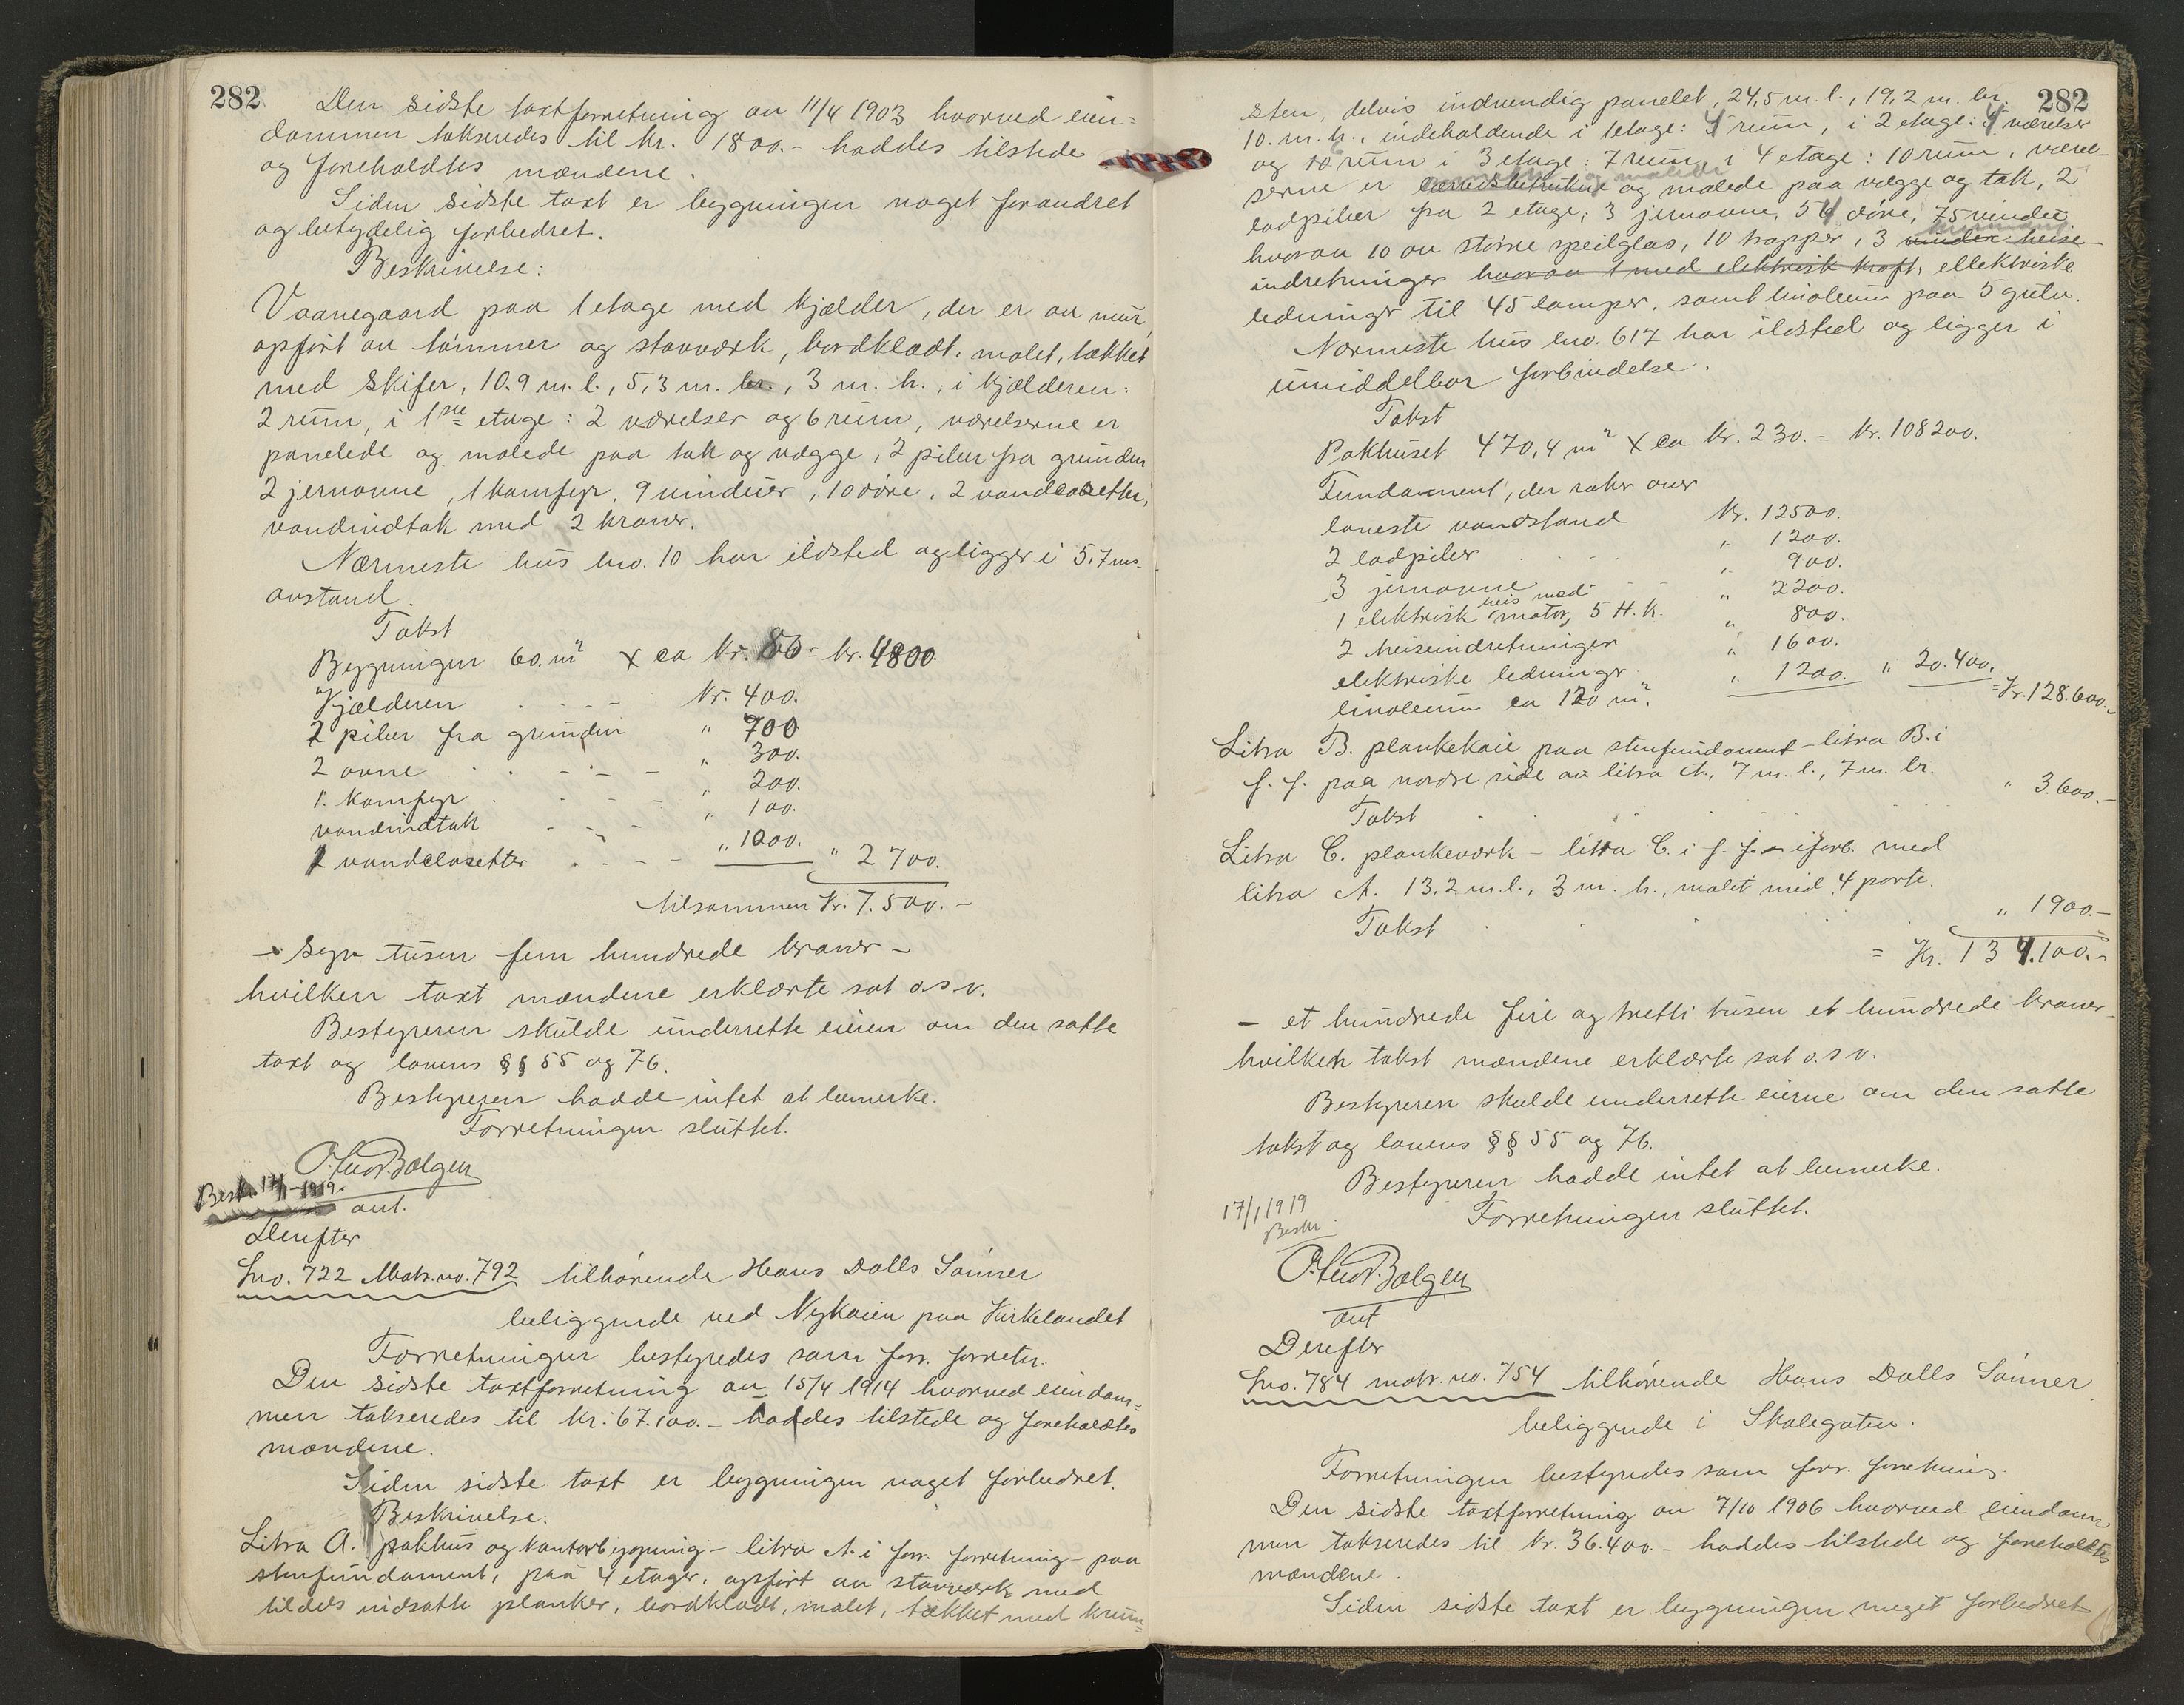 282
Den sidste taxtforretning av 11/4 1903 hvorved eien=
dommen takseredes til kr. 1800.- haddes tilstede
og foreholdtes mændene.
Siden sidste taxt er bygningen noget forandret
og betydelig forbedret.
Beskrivelse:
Vaanegaard paa 1 etage med kjælder, der er av mur,
opført av tømmer og stavværk, bordklædt, malet, tækket
med skifer, 10.9 m. l., 5,3 m. br., 3 m. h., i kjælderen:
2 rum, i 1ste etage: 2 værelser og 6 rum, værelserne er
panelede og malede paa tak og vægge, 2 piber fra grunden
2 jernovne, 1 komfyr, 9 vinduer, 10 døre, 2 vandclosetter,
vandindtak med 2 kraner.
Nærmeste hus bno. 10 har ildsted og ligger i 5,7 ms.
avstand.
Takst
Bygningen 60. m² x ca kr. 80 = kr. 4800.
Kjælderen . . - - kr. 400.
2 piber fra grunden " 700
2 ovne . . - - - " 300.
1. komfyr . . - - " 200.
vandindtak - - - " 100.
2 vandclosetter . . - - " 1000. " 2700.
tilsammen kr. 7.500.-
- syv tusen fem hundrede kroner -
hvilken taxt mændene erklærte sat o.s.v.
Bestyreren skulde underrette eieren om den satte
taxt og lovens §§ 55 og 76.
Bestyreren hadde intet at bemerke.
Forretningen sluttet.
O. Ludv. Bælgen
Beskr. 17/1-1919.
aut.
Derefter
Lno. 722 Matr.no. 792 tilhørende Hans Dalls Sønner
beliggende ved Nykaien paa Kirkelandet
Forretningen bestyredes som forr. forretn.
Den sidste taxtforretning av 15/4 1914 hvorved eiendom=
men takseredes til kr. 67.100.- haddes tilstede og foreholdtes
mændene.
Siden sidste taxt er bygningen noget forbedret.
Beskrivelse:
Litra A. pakhus og kontorbygning - litra A. i forr. forretning - paa
stenfundament, paa 4 etager, opført av stavværk med
tildels indsatte planker, bordklædt, malet, tækket med krum=
282
sten, delvis indvendig panelet, 24,5 m. l., 19,2 m. br.
10. m. h., indeholdende i 1 etage: 4 rum, i 2 etage: 4 værelser
og 6 rum i 3 etage: 7 rum, i 4 etage: 10 rum, værel-
serne er og malede paa vægge og tak, 2
ladpiber fra 2 etage, 3 jernovne, 54 døre, 75 vinduer
hvorav 10 av større speilglas, 10 trapper, 3 vinder heise-
indretninger hvorav 1 med elektrisk kraft, ellektriske
ledninger til 45 lamper, samt linoleum paa 5 gulv.
Nærmeste hus bno. 617 har ildsted og ligger i
umiddelbar forbindelse.
Takst
Pakhuset 470,4 m² x ca kr. 230. = kr. 108200.
Fundament, der raker over
laveste vandstand kr. 12500.
2 ladpiber . . - . " 1200.
3 jernovne - - " 900.
1 elektrisk heis med motor, 5 H.K. " 2200.
2 heiseindretninger " 800.
elektriske ledninger " 1600.
linoleum ca 120 m². " 1200. " 20.400.
= Kr. 128.600.-
Litra B. plankekaie paa stenfundament - litra B. i
f. f. paa nordre side av litra A., 7 m. l., 7 m. br.
Takst " 3.600.-
Litra C. plankeværk - litra C. i f. f. - i forb. med
litra A. 13,2 m. l., 3 m. h., malet med 4 porte.
Takst " 1900.-
= Kr. 134.100.-
- et hundrede fire og tretti tusen et hundrede kroner -
hvilken takst mændene erklærte sat o.s.v.
Bestyreren skulde underrette eierne om den satte
takst og lovens §§ 55 og 76.
Bestyreren hadde intet at bemerke.
Forretningen sluttet.
17/1 1919
Beskr.
O. Ludv. Bælgen
aut
Derefter
Lno. 784 matr. no. 754 tilhørende Hans Dalls Sønner
beliggende i Skolegaten.
Forretningen bestyredes som forr. forretning.
Den sidste taxtforretning av 7/10 1906 hvorved eiendom=
men takseredes til kr. 36.400.- haddes tilstede og foreholdtes
mændene.
Siden sidste taxt er bygningen meget forbedret